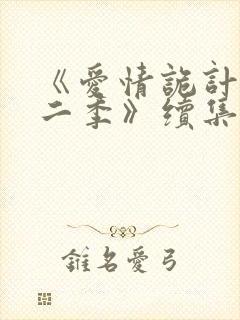 《愛情詭計
二季》續集
錐名愛弓